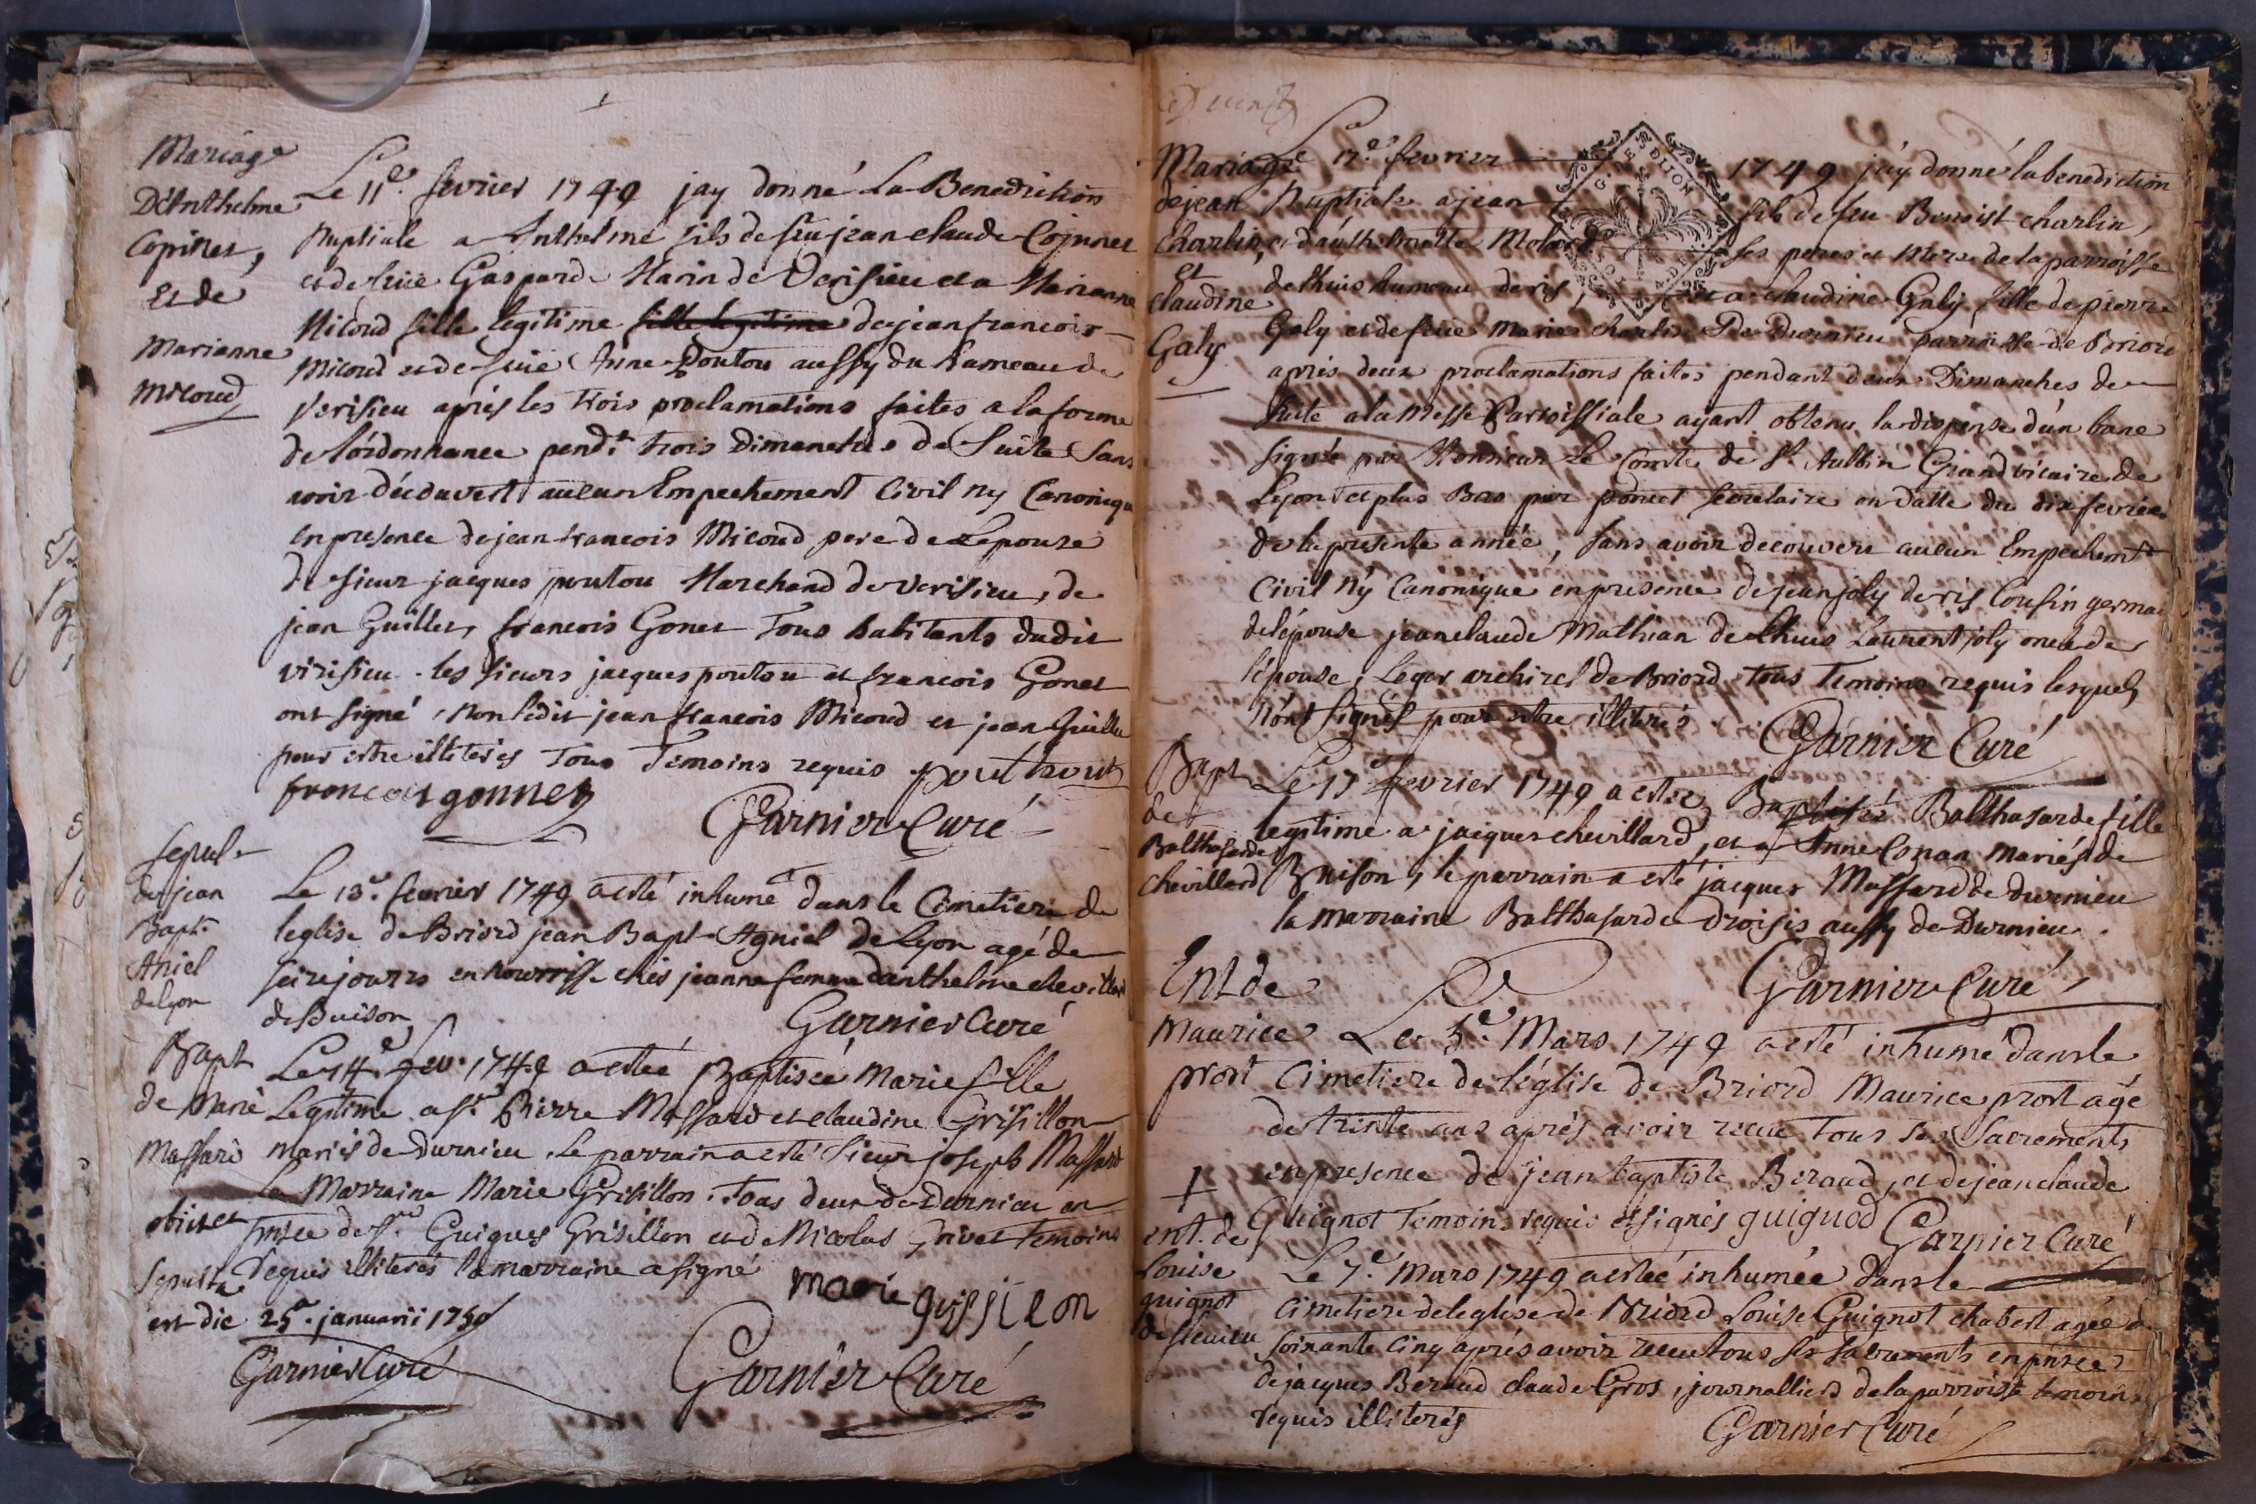 Mariage
D'Anthelme
Cojnnet,
Et de
Marianne
Micoud
Le 11e. fevrier 1749 jay donné La Benediction
Nuptiale a Anthelme fils de feu jean claude Cojnnet
et de feüe Gasparde Marin de Verisieu et a Marianne
Micoud fille legitime fille legitime de jean francois
Micoud et de feüe Anne Poutou aussy du hameau de
Verisieu aprés les trois proclamations faites a la forme
de l'órdonnance pendt. trois Dimanches de Suite Sans
avoir découvert aucun Empechement Civil ny Canonique
en presence de jean francois Micoud pere de Lepouse
de sieur jacques poutou Marchand de Verisieu, de
jean Guillet, francois Gonet Tous habitants dudit
virisieu. les sieurs jacques poutou et francois Gonet
ont signé, non ledit jean francois Micoud et jean Guillet
pour estre illiterés Tous Temoins requis pouthout
francois gonnet
Garnier Curé
sepul.
de jean
Bapt.
Aniel
de lyon
Le 13e. fevrier 1749 a esté inhumé dans le Cimetiere de
leglise de Briord jean Bapt. Agniel de Lyon agé de
seize jours en nourrisse chés jeanne femme d'anthelme chevillard
de Buison
Garnier Curé
Bapt
de Marie
Massard
Le 14e. fev. 1749 a estée Baptisée Marie fille
Legitime a sr. Pierre Massard et claudine Grisillon
mariés de Durnieu. Le parrain a esté Sieur joseph Massard
la Marraine Marie Grisillon. Tous deux de Durnieu en
pnsce de sr. Guigues Grisillon et de Nicolas Trivet temoins
requis illiterés la marraine a signé
marie grissilon
obiit et
sepulta
est die 25a. januarii 1750
Garnier Curé
Garnier Curé
Mariage
de jean
Charlin,
et
claudine
Galy
Le 17e. fevrier 1749 j'ay donné la benediction
Nuptiale a jean fils de feu Benoist charlin,
et d'anthelmette Molard ses peres et Mere de la parroisse
de Lhuis hameau de ris, et a claudine Galy fille de pierre
Galy et de feüe Marie charlin De Durnieu parroisse de Briord
aprés deux proclamations faites pendant deux Dimanches de
suite a la Messe Parroissiale ayant obtenu la dispense d'ún banc
signée par Monsieur Le Comte de St. Aubin Grand vicaire de
Lyon et plus Bas par poncet secretaire en datte du dix fevrier
de la presente année, sans avoir decouvert aucun Empechemt.
Civil Ny Canonique en presence de jean joly de ris Cousin germain
de l'épouse jean claude Mathian de Lhuis Laurent joly oncle de
l'épouse, Leger archirel de Briord Tous Temoins requis lesquels
N'ónt signés pour estre illiterés
Garnier Curé
Bapt
de
Balthasarde
chevillard
Le 17e. fevrier 1749 a estée Baptisée Balthasarde fille
legitime a jacques chevillard, et a Anne Conan mariés de
Buison, le parrain a esté jacques Massard de durnieu
la marraine Balthasarde Droisis aussy de Durnieu.
Garnier Curé
Ent de
Maurice
prost
Le 3e. Mars 1749 a esté inhumé dans le
Cimetiere de l'église de Briord Maurice prost agé
de trente ans aprés avoir receu Tous ses Sacrements
en presence de jean baptiste Beraud, et de jean claude
Guignot Temoins requis et signés guiguod Garnier Curé
ent. de
Louise
guignot
de flevieu
Le 7e. Mars 1749 a estée inhumée dans le
Cimetiere de leglise de Briord Louise Guignot chabert agée de
soixante Cinq aprés avoir receu tous ses sacrements en pnsce
de jacques Beraud claude Gros, journalliers de la parroisse temoins
requis illiterés
Garnier Curé